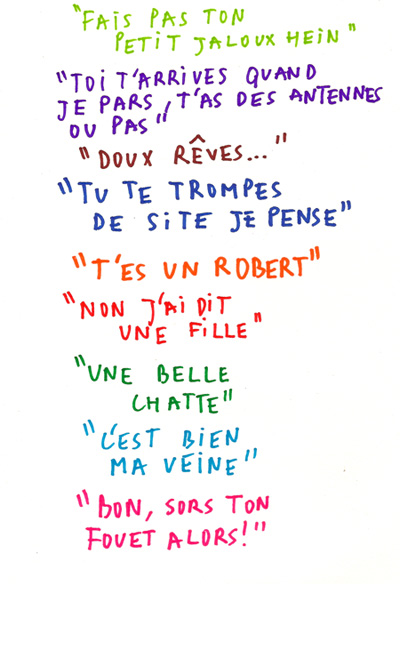 "FAIS PAS TON
PETIT JALOUX HEIN"
"TOI T'ARRIVES QUAND
JE PARS, T'AS DES ANTENNES
OU PAS"
"DOUX RÊVES..."
"TU TE TROMPES
DE SITE JE PENSE"
"T'ES UN ROBERT"
"NON J'AI DIT
UNE FILLE"
"UNE BELLE
CHATTE"
"C'EST BIEN
MA VEINE"
"BON, SORS TON
FOUET ALORS!"